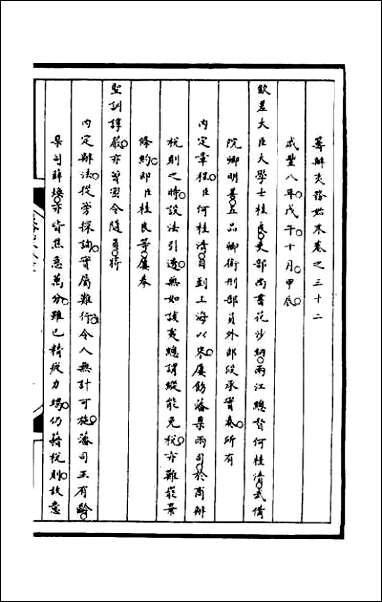 籌辦夷務始末卷之三十二
咸豐八年戊午十月甲辰
欽差大臣大學士桂良吏部尚書花沙納兩江總督何桂清武備
院卿明善五品卿銜刑部員外郎段承實奏所有
內定章程臣何桂清自到上海以來屢飭藩臬兩司於商辦
稅則之時設法引透無如該夷總謂縱能免稅亦難罷棄
條約即臣桂良等屢奉
聖訓諄嚴亦曾密令隨員將
內定辦法從旁探詢實屬難行令人無計可施藩司王有齡
臬司薛煥亦皆焦急萬分雖已精疲力竭仍藉稅則故意